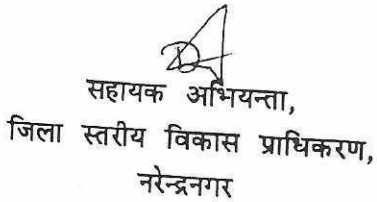 सहायक अभियन्ता,
जिला स्तरीय विकास प्राधिकरण,
नरेन्द्रनगर